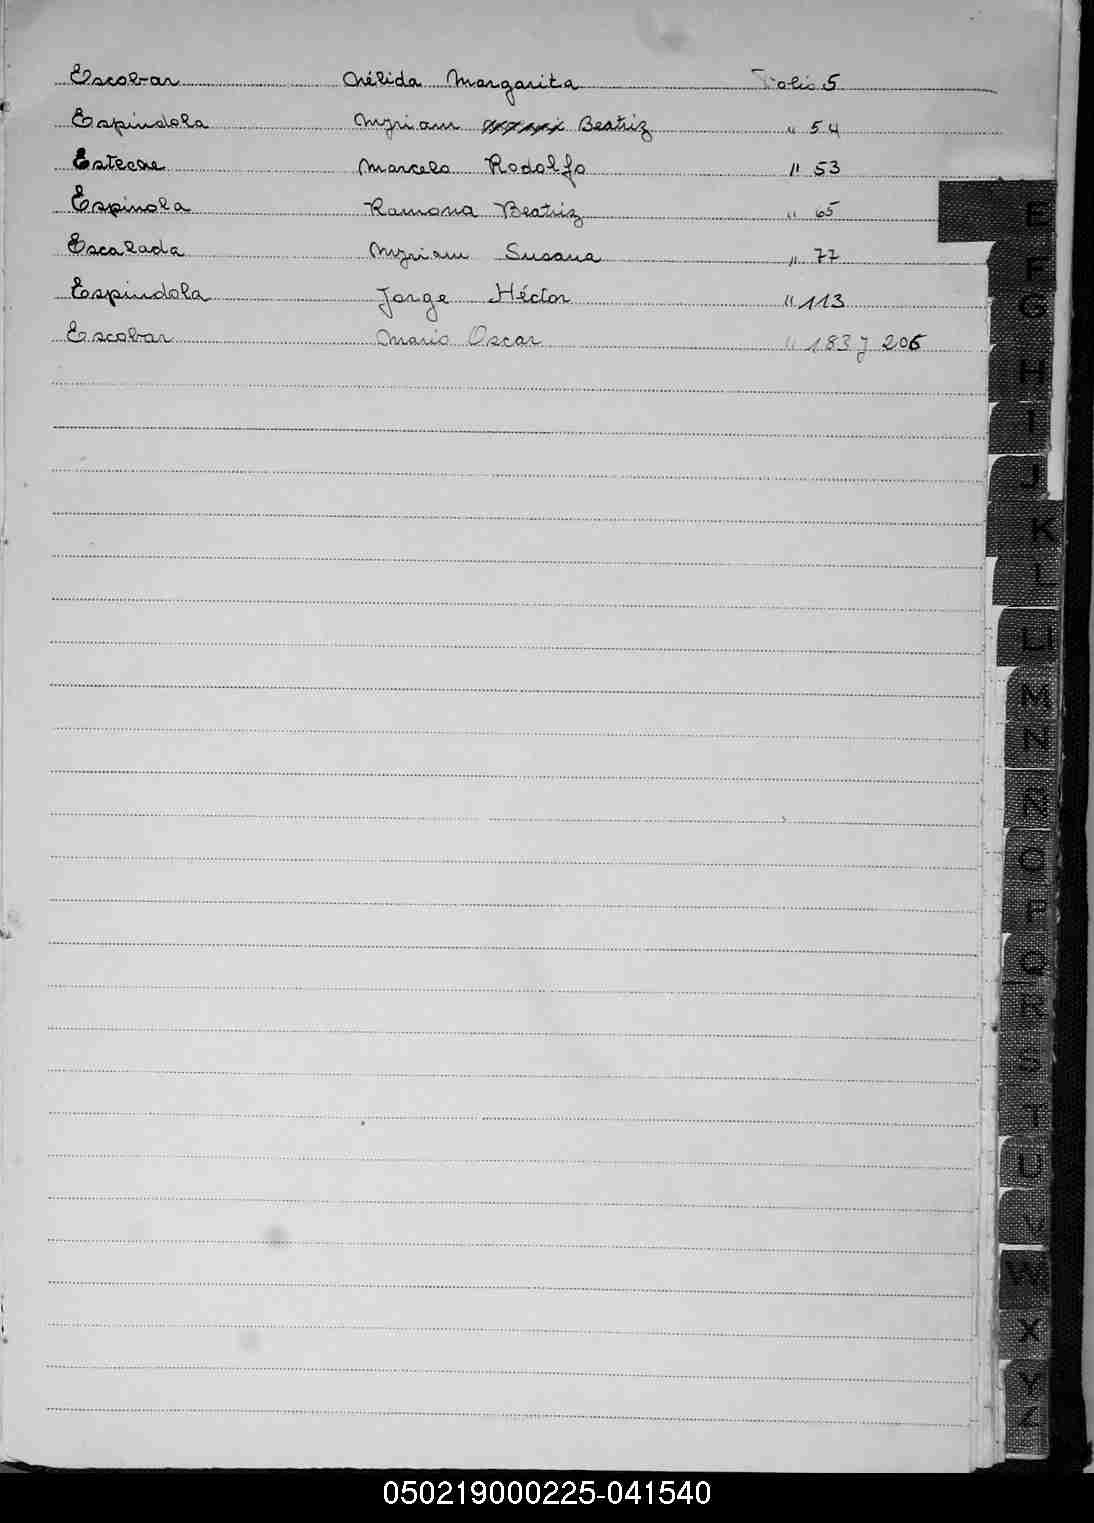 Escobar Nélida Margarita Folio 5
Espindola Myriam Beatriz " 54
Esteche Marcelo Rodolfo " 53
Espinola Ramona Beatriz " 65
Escalada Myriam Susana " 77
Espindola Jorge Héctor " 113
Escobar Mario Oscar " 183 y 206
E
F
G
H
I
J
K
L
LL
M
N
Ñ
O
P
Q
R
S
T
U
V
W
X
Y
Z
050219000225-041540